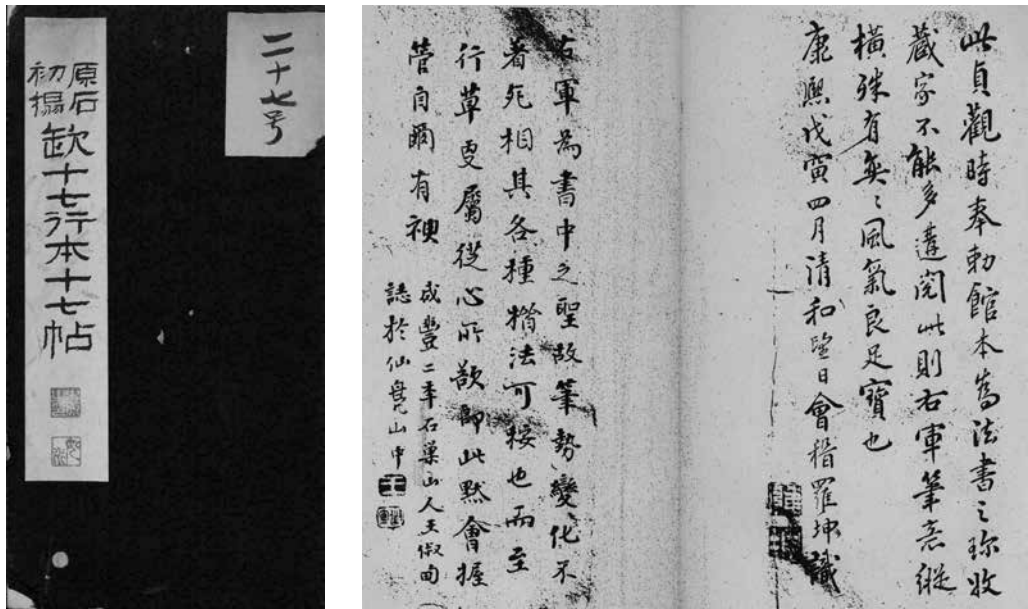 二十七号
原石
初搨
缺十七行本十七帖
此貞觀時奉勅館本為法書之珎收
藏家不能多遘閱此則右軍筆意縱
橫殊有奕〻風氣良足寶也
康熙戊寅四月清和望日會稽羅坤識
右軍為書中之聖故筆勢變化不
著死相其各種楷法可按也而至
行草更屬從心所欲即此黙會握
管自爾有裨
咸豐二季石巢山人王俶甸
誌於仙山中